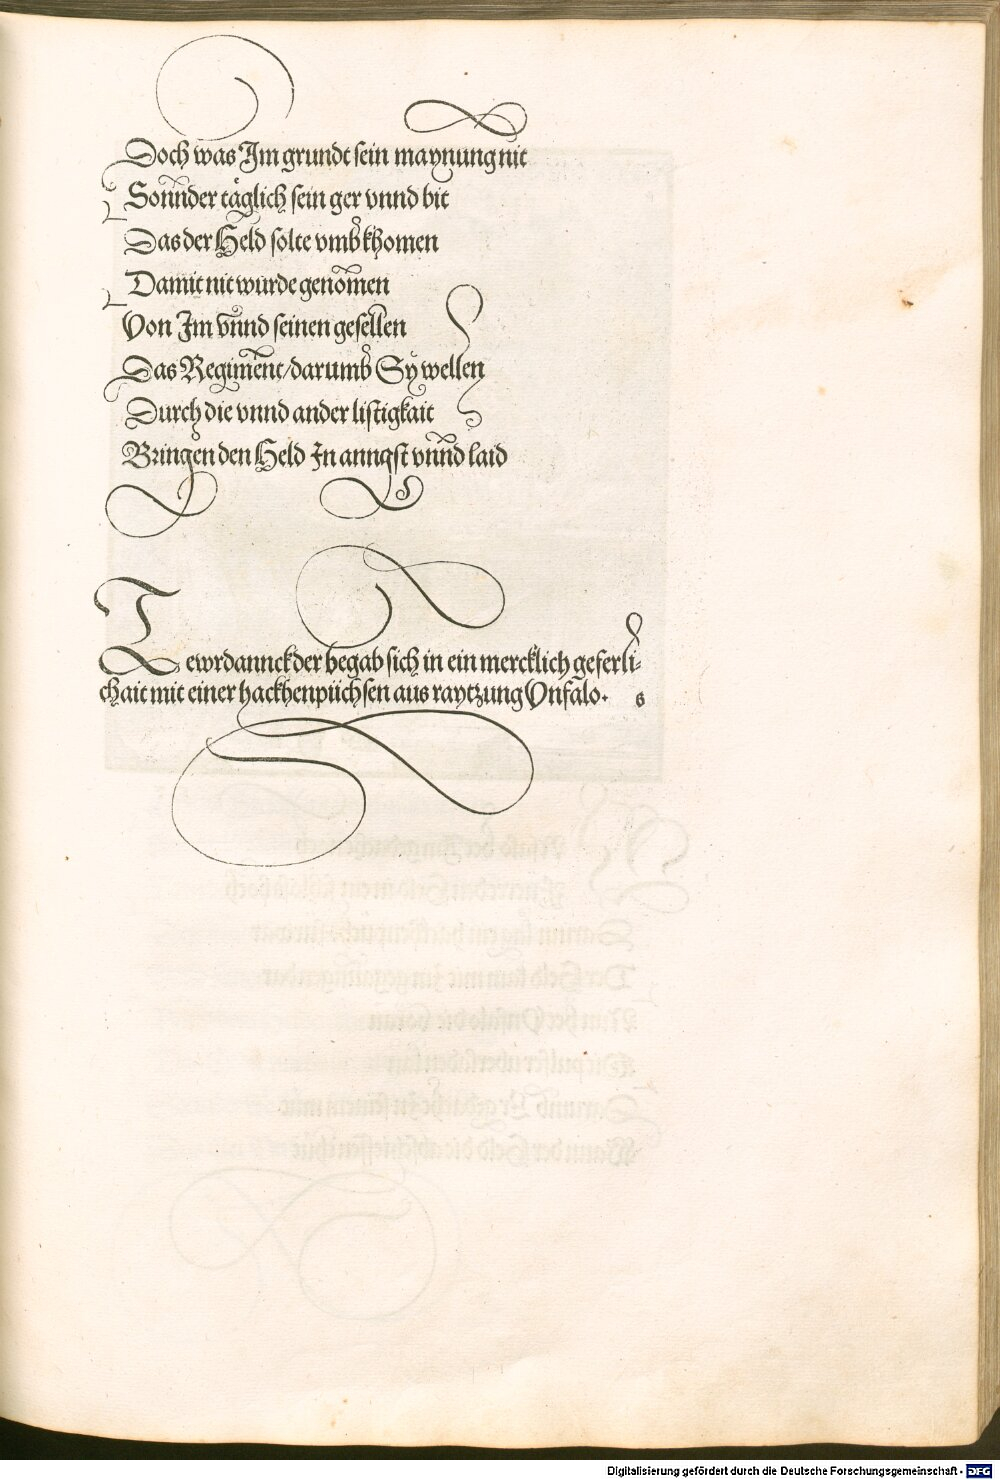 Doch was Im grundt sein maynung nit
Sonnder täglich sein ger vnnd bit
Das der Held solte vmb khomen
Damit nit wurde genomen
Von Im vnnd seinen gesellen
Das Regiment/darumb Sy wellen
Durch die vnnd ander listigkait
Bringen den Held In anngst vnnd laid
Tewrdannck der begab sich in ein mercklich geferli-
chait mit einer hackhenpüchsen aus raytzung Vnfalo. s
Digitalisierung gefördert durch die Deutsche Forschungsgemeinschaft - DFG